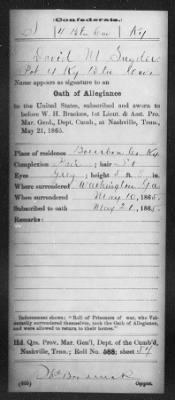 (Confederate.)
S | 4 Btn Cav | Ky
David M Snyder
Pvt 4 Ky Btn Cav
Name appears as signature to an
Oath of Allegiance
to the United States, subscribed and sworn to
before W. H. Bracken, 1st Lieut. & Asst. Pro.
Mar. Genl., Dept. Cumb., at Nashville, Tenn.,
May 21, 1865.
Place of residence Bourbon Co Ky
Complexion Fair ; hair
Eyes Grey ; height 5 ft. 8 in.
Where surrendered Washington Ga
When surrendered May 10, 1865.
Subscribed to oath May 21, 1865.
Remarks:
Indorsement shows: "Roll of Prisoners of war, who Vol-
untarily surrendered themselves, took the Oath of Allegiance,
and were allowed to return to their homes."
Hd. Qrs. Prov. Mar. Gen'l, Dept. of the Cumb'd,
Nashville, Tenn.; Roll No. 588; sheet 54
Copyist.